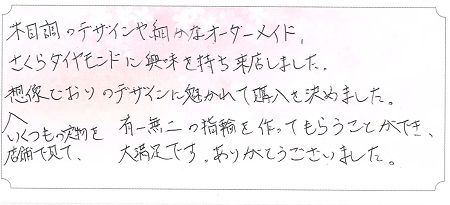 木目調のデザインや細かなオーダーメイド、
さくらダイヤモンドに興味を持ち来店しました。
想像どおりのデザインに魅かれて購入を決めました。
いくつもの実物を
店舗で見て、
有一無二の指輪を作ってもらうことができ、
大満足です。ありがとうございました。